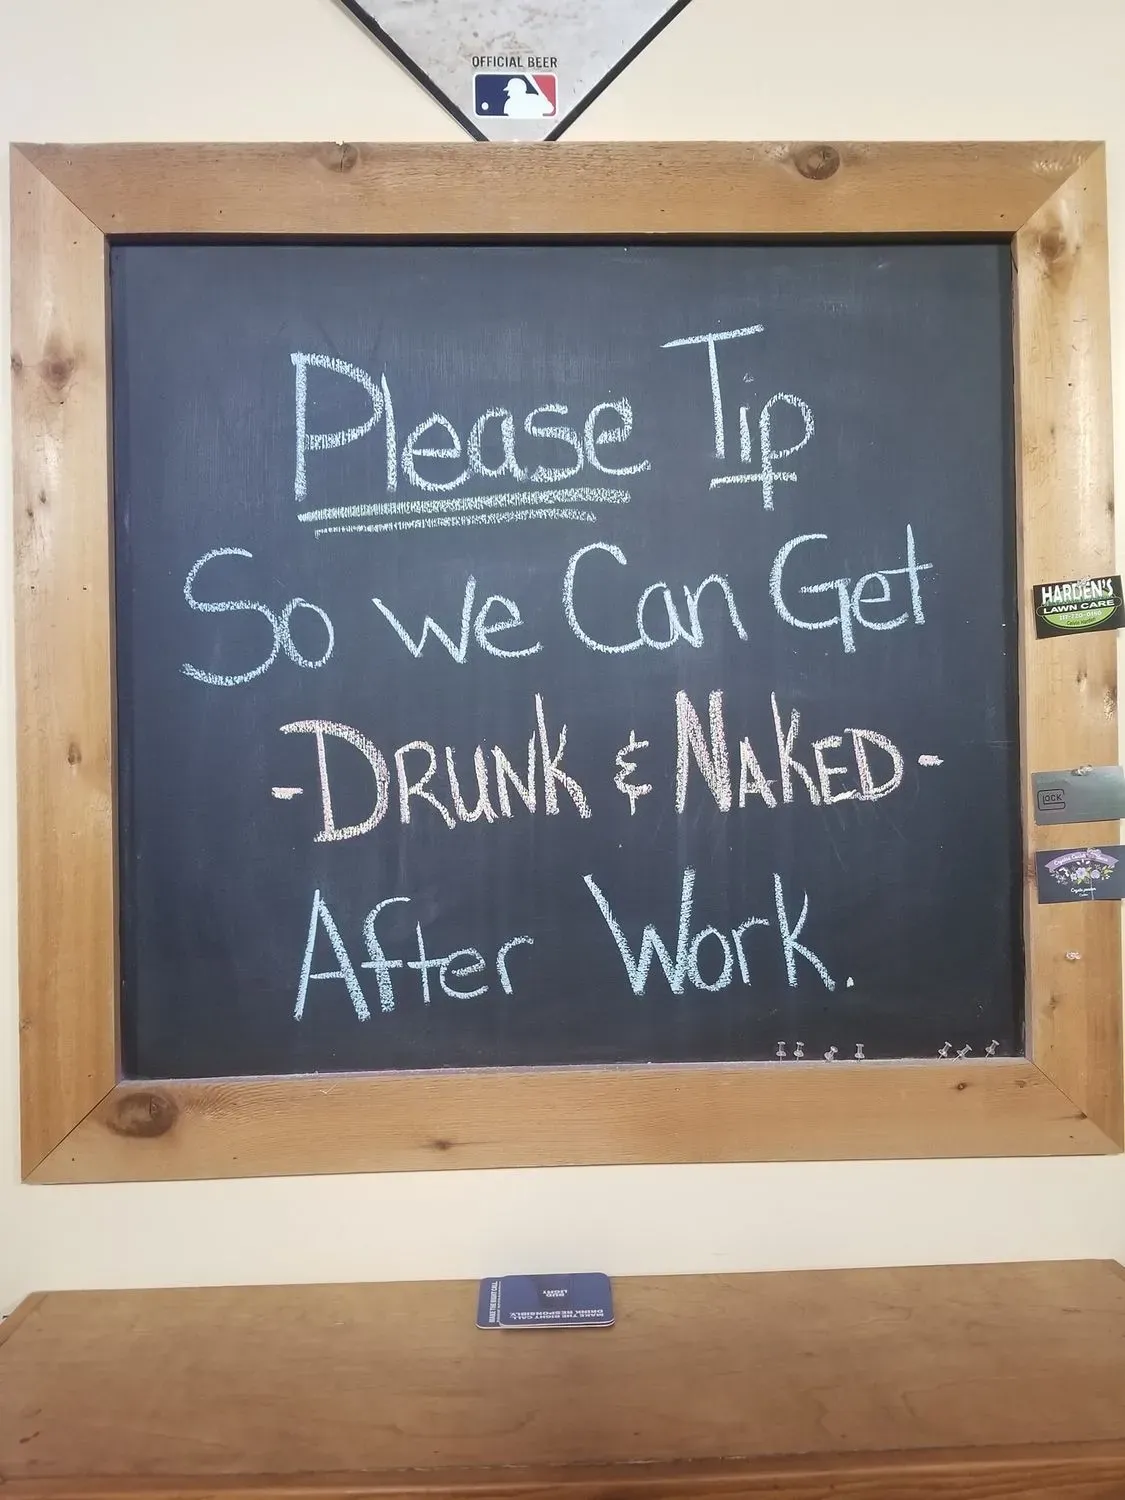 OFFICIAL BEER
Please Tip
So we Can Get
-DRUNK & NAKED-
After Work.
HARDEN'S
LAWN CARE
GLOCK
MAKE THE RIGHT CALL
BUD
LIGHT
MAKE THE RIGHT CALL
DRINK RESPONSIBLY.